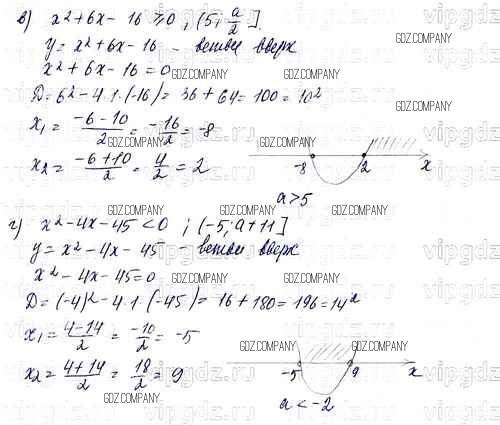 в) x² + 6x - 16 ≥ 0 ; (5; a/2].
y = x² + 6x - 16 - ветви вверх
x² + 6x - 16 = 0
D = 6² - 4·1·(-16) = 36 + 64 = 100 = 10²
x₁ = (-6-10)/2 = -16/2 = -8
x₂ = (-6+10)/2 = 4/2 = 2
-8 2 x
a > 5
г) x² - 4x - 45 < 0 ; (-5; a+11]
y = x² - 4x - 45 - ветви вверх
x² - 4x - 45 = 0
D = (-4)² - 4·1·(-45) = 16 + 180 = 196 = 14²
x₁ = (4-14)/2 = -10/2 = -5
x₂ = (4+14)/2 = 18/2 = 9
-5 9 x
a < -2
GDZ.COMPANY
vipgdz.ru